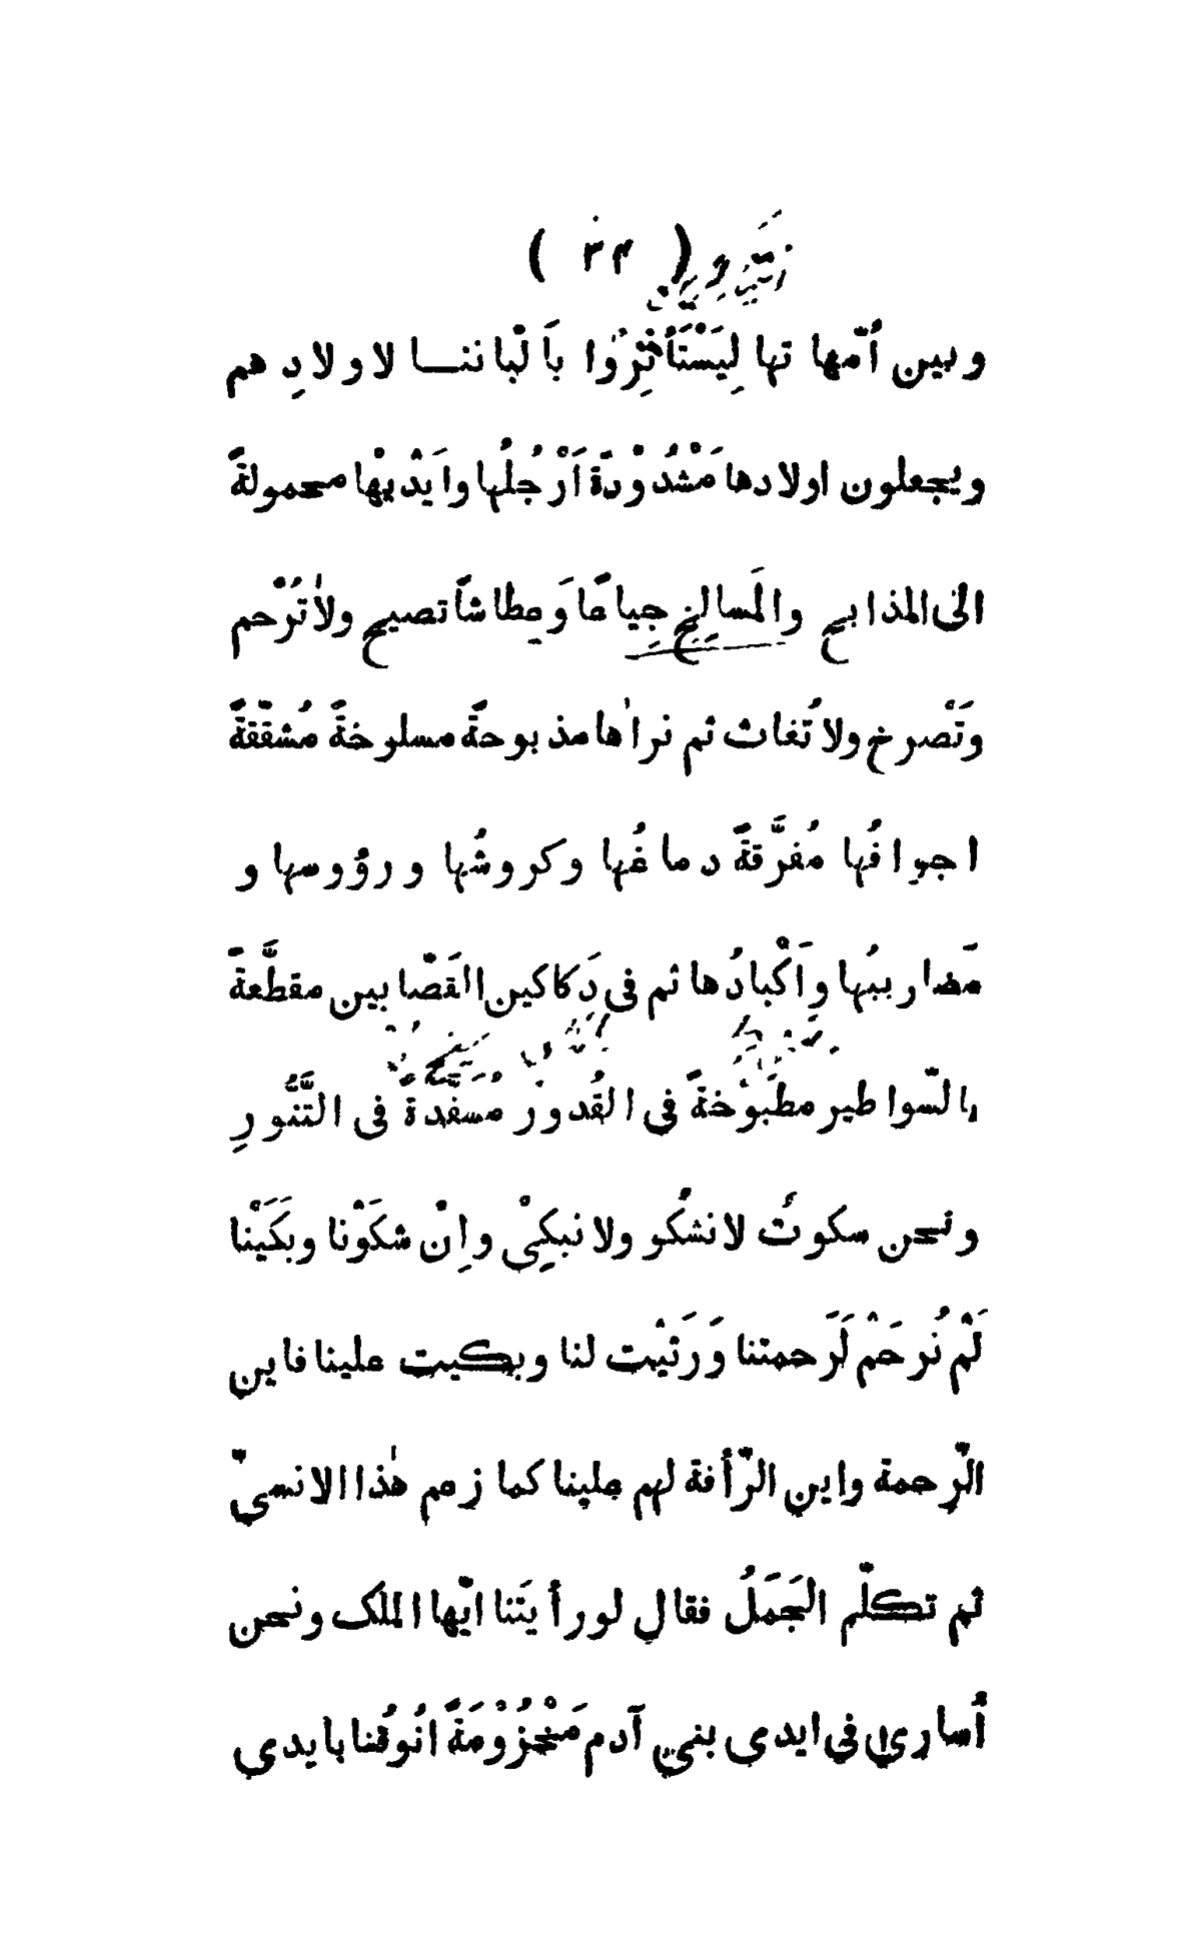 ( ٣٤ )
وبين أمّهاتها لِيَسْتَأْثِرُوا بأَلْباننا لاولادِهم
ويجعلون اولادها مَشْدُوْدَةً اَرْجُلُها واَيْديْها محمولةً
الى المذابح والمَسالِخ جِياعًا وَعِطاشًا تصيح ولا تُرْحم
وتَصْرخ ولا تُغاث ثم نراها مذبوحةً مسلوخةً مُشقّقةً
اجوافُها مُفرَّقةً دماغُها وكروشُها ورؤوسها و
مَصاريبُها واَكْبادُها ثم فى دَكاكين القَصّابين مقطَّعةً
بالسّواطير مطبَوْخةً في القُدور مسفّدةً فى التَّنُّورِ
ونحن سكوتٌ لا نشكُو ولا نبكِيْ واِنْ شكَوْنا وبكَيْنا
لَمْ نُرحَمْ لَرَحمتنا وَرَثيْت لنا وبكيت علينا فاين
الرّحمة واين الرّأفة لهم علينا كما زعم هٰذا الانسيّ
ثم تكلّم الجَمَلُ فقال لو رأيتَنا ايّها الملك ونحن
أسارىٰ في ايدى بني آدم مَخْزُوْمَةً انُوفُنا بايدى